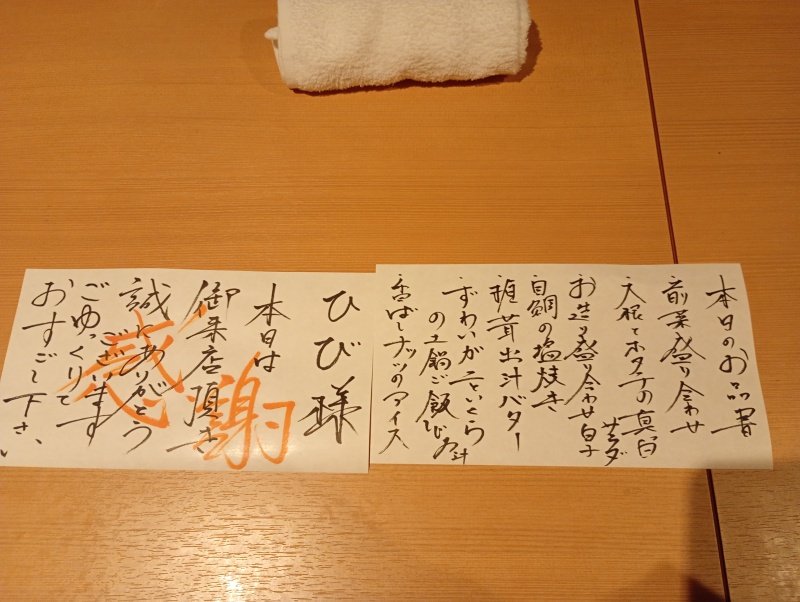 本日のお品書
前菜盛り合わせ
大根とホタテの真白
サラダ
お造り盛り合わせ
鯛の塩焼き
椎茸出汁バター
ずわいがにといくら
の土鍋ご飯
香ばしナッツのアイス
ひび様
本日は
御来店頂き
誠にありがとう
ございます
ごゆっくりて
おすごし下さい
感謝